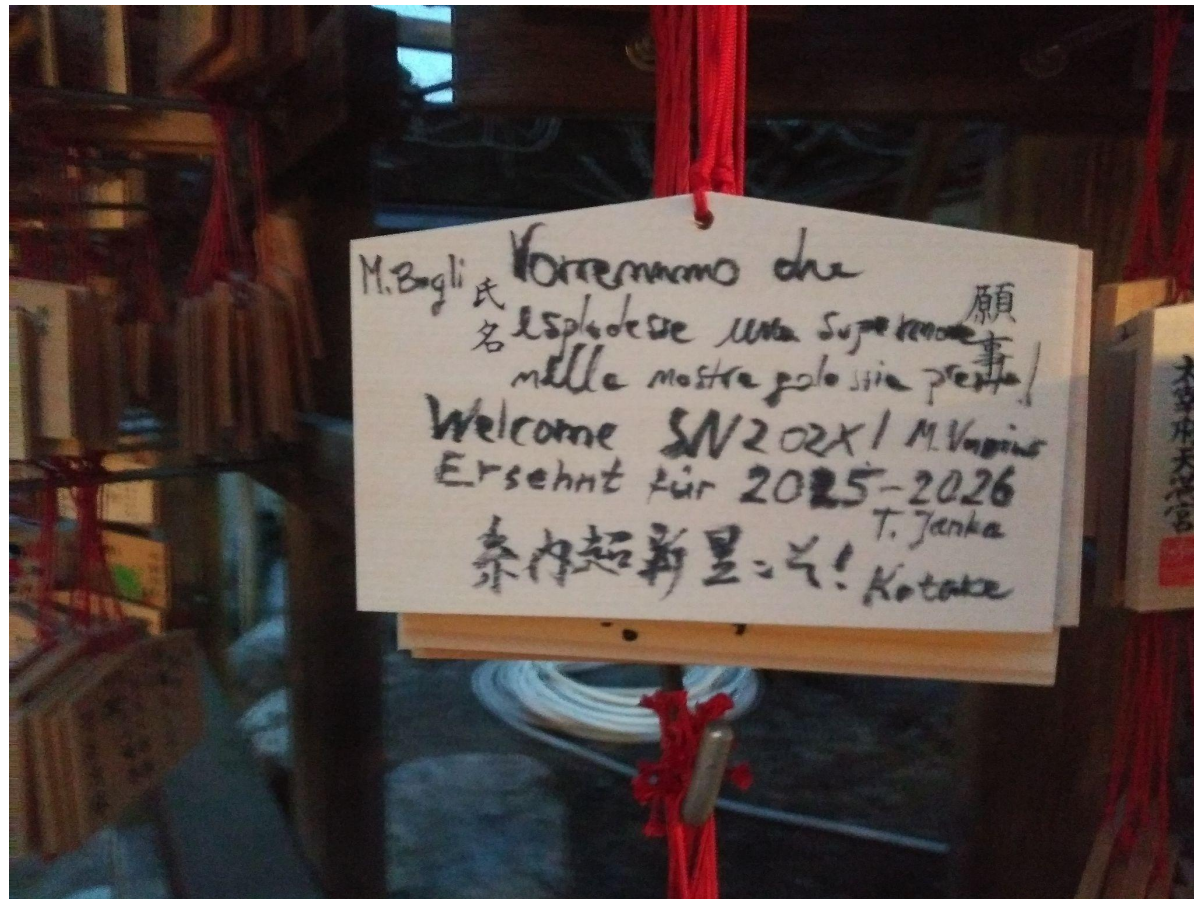 M. Bugli
氏名
願事
Vorremmo che
esplodesse una supernova
nella nostra galassia presto!
Welcome SN202X! M. Vagins
Ersehnt für 2025-2026
T. Janka
系内超新星こそ!
Kotake
太宰府天満宮